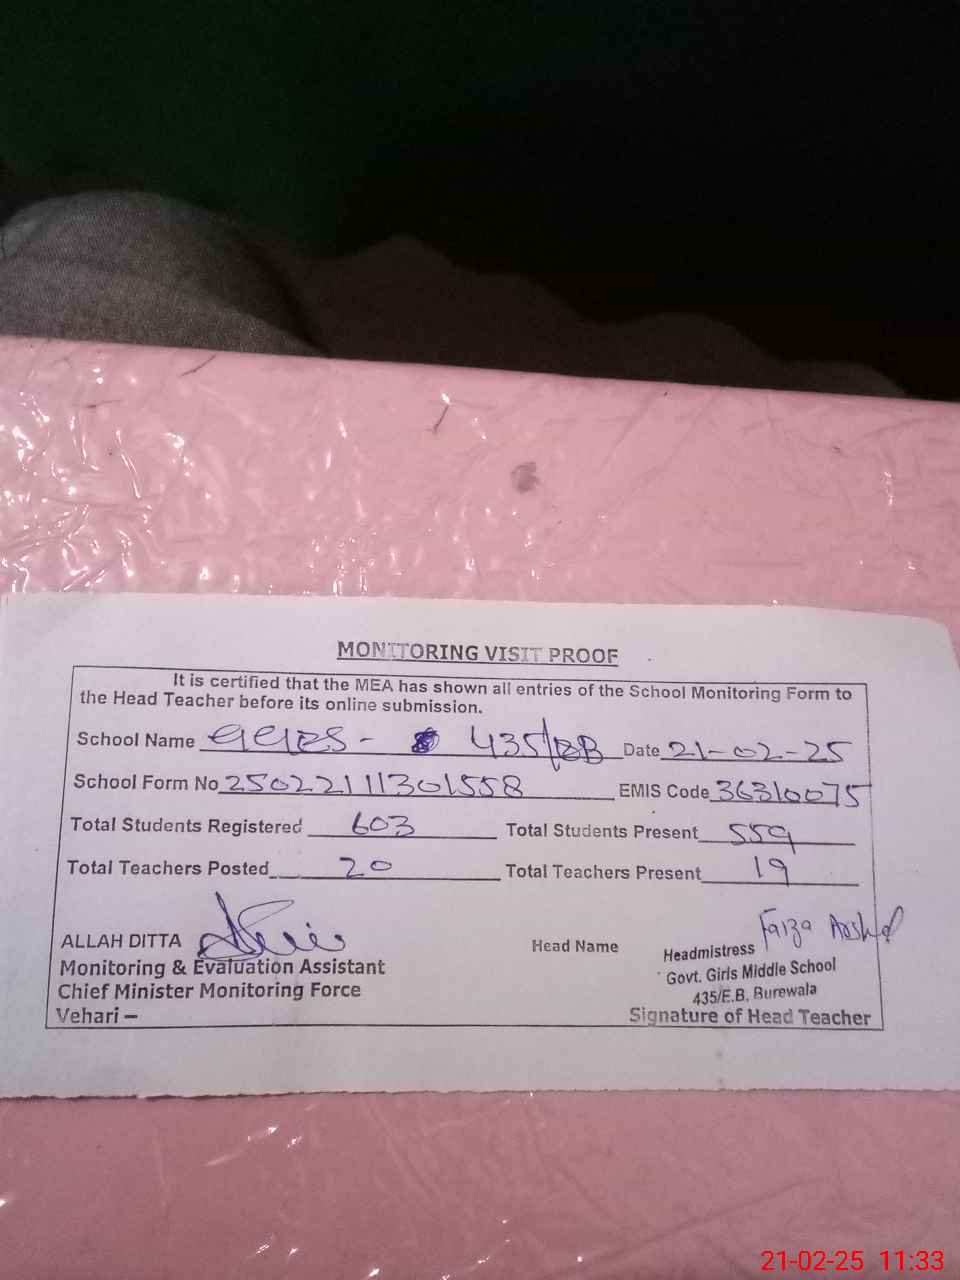 MONITORING VISIT PROOF
It is certified that the MEA has shown all entries of the School Monitoring Form to
the Head Teacher before its online submission.
School Name GGES - 435/EB Date 21-02-25
School Form No 25022111301558 EMIS Code 36310075
Total Students Registered 603 Total Students Present 559
Total Teachers Posted 20 Total Teachers Present 19
ALLAH DITTA Head Name Headmistress Faiza Arshad
Monitoring & Evaluation Assistant Govt. Girls Middle School
Chief Minister Monitoring Force 435/E.B. Burewala
Vehari – Signature of Head Teacher
21-02-25 11:33